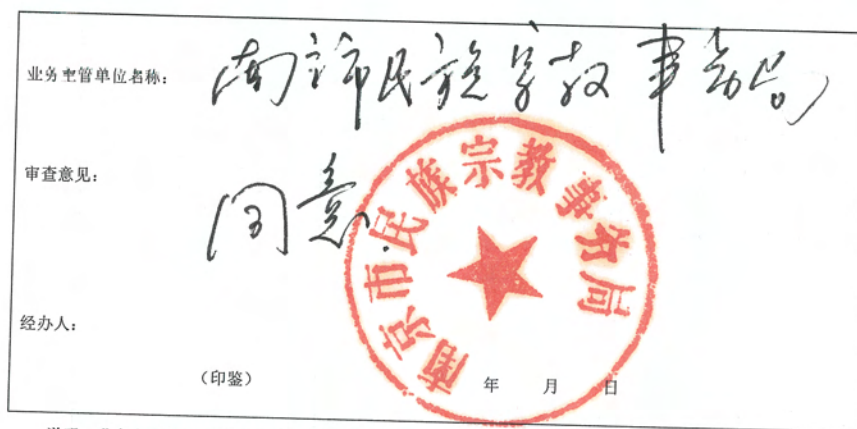 业务主管单位名称：南京市民族宗教事务局
审查意见：
同意.
南京市民族宗教事务局
经办人：
（印鉴） 年 月 日